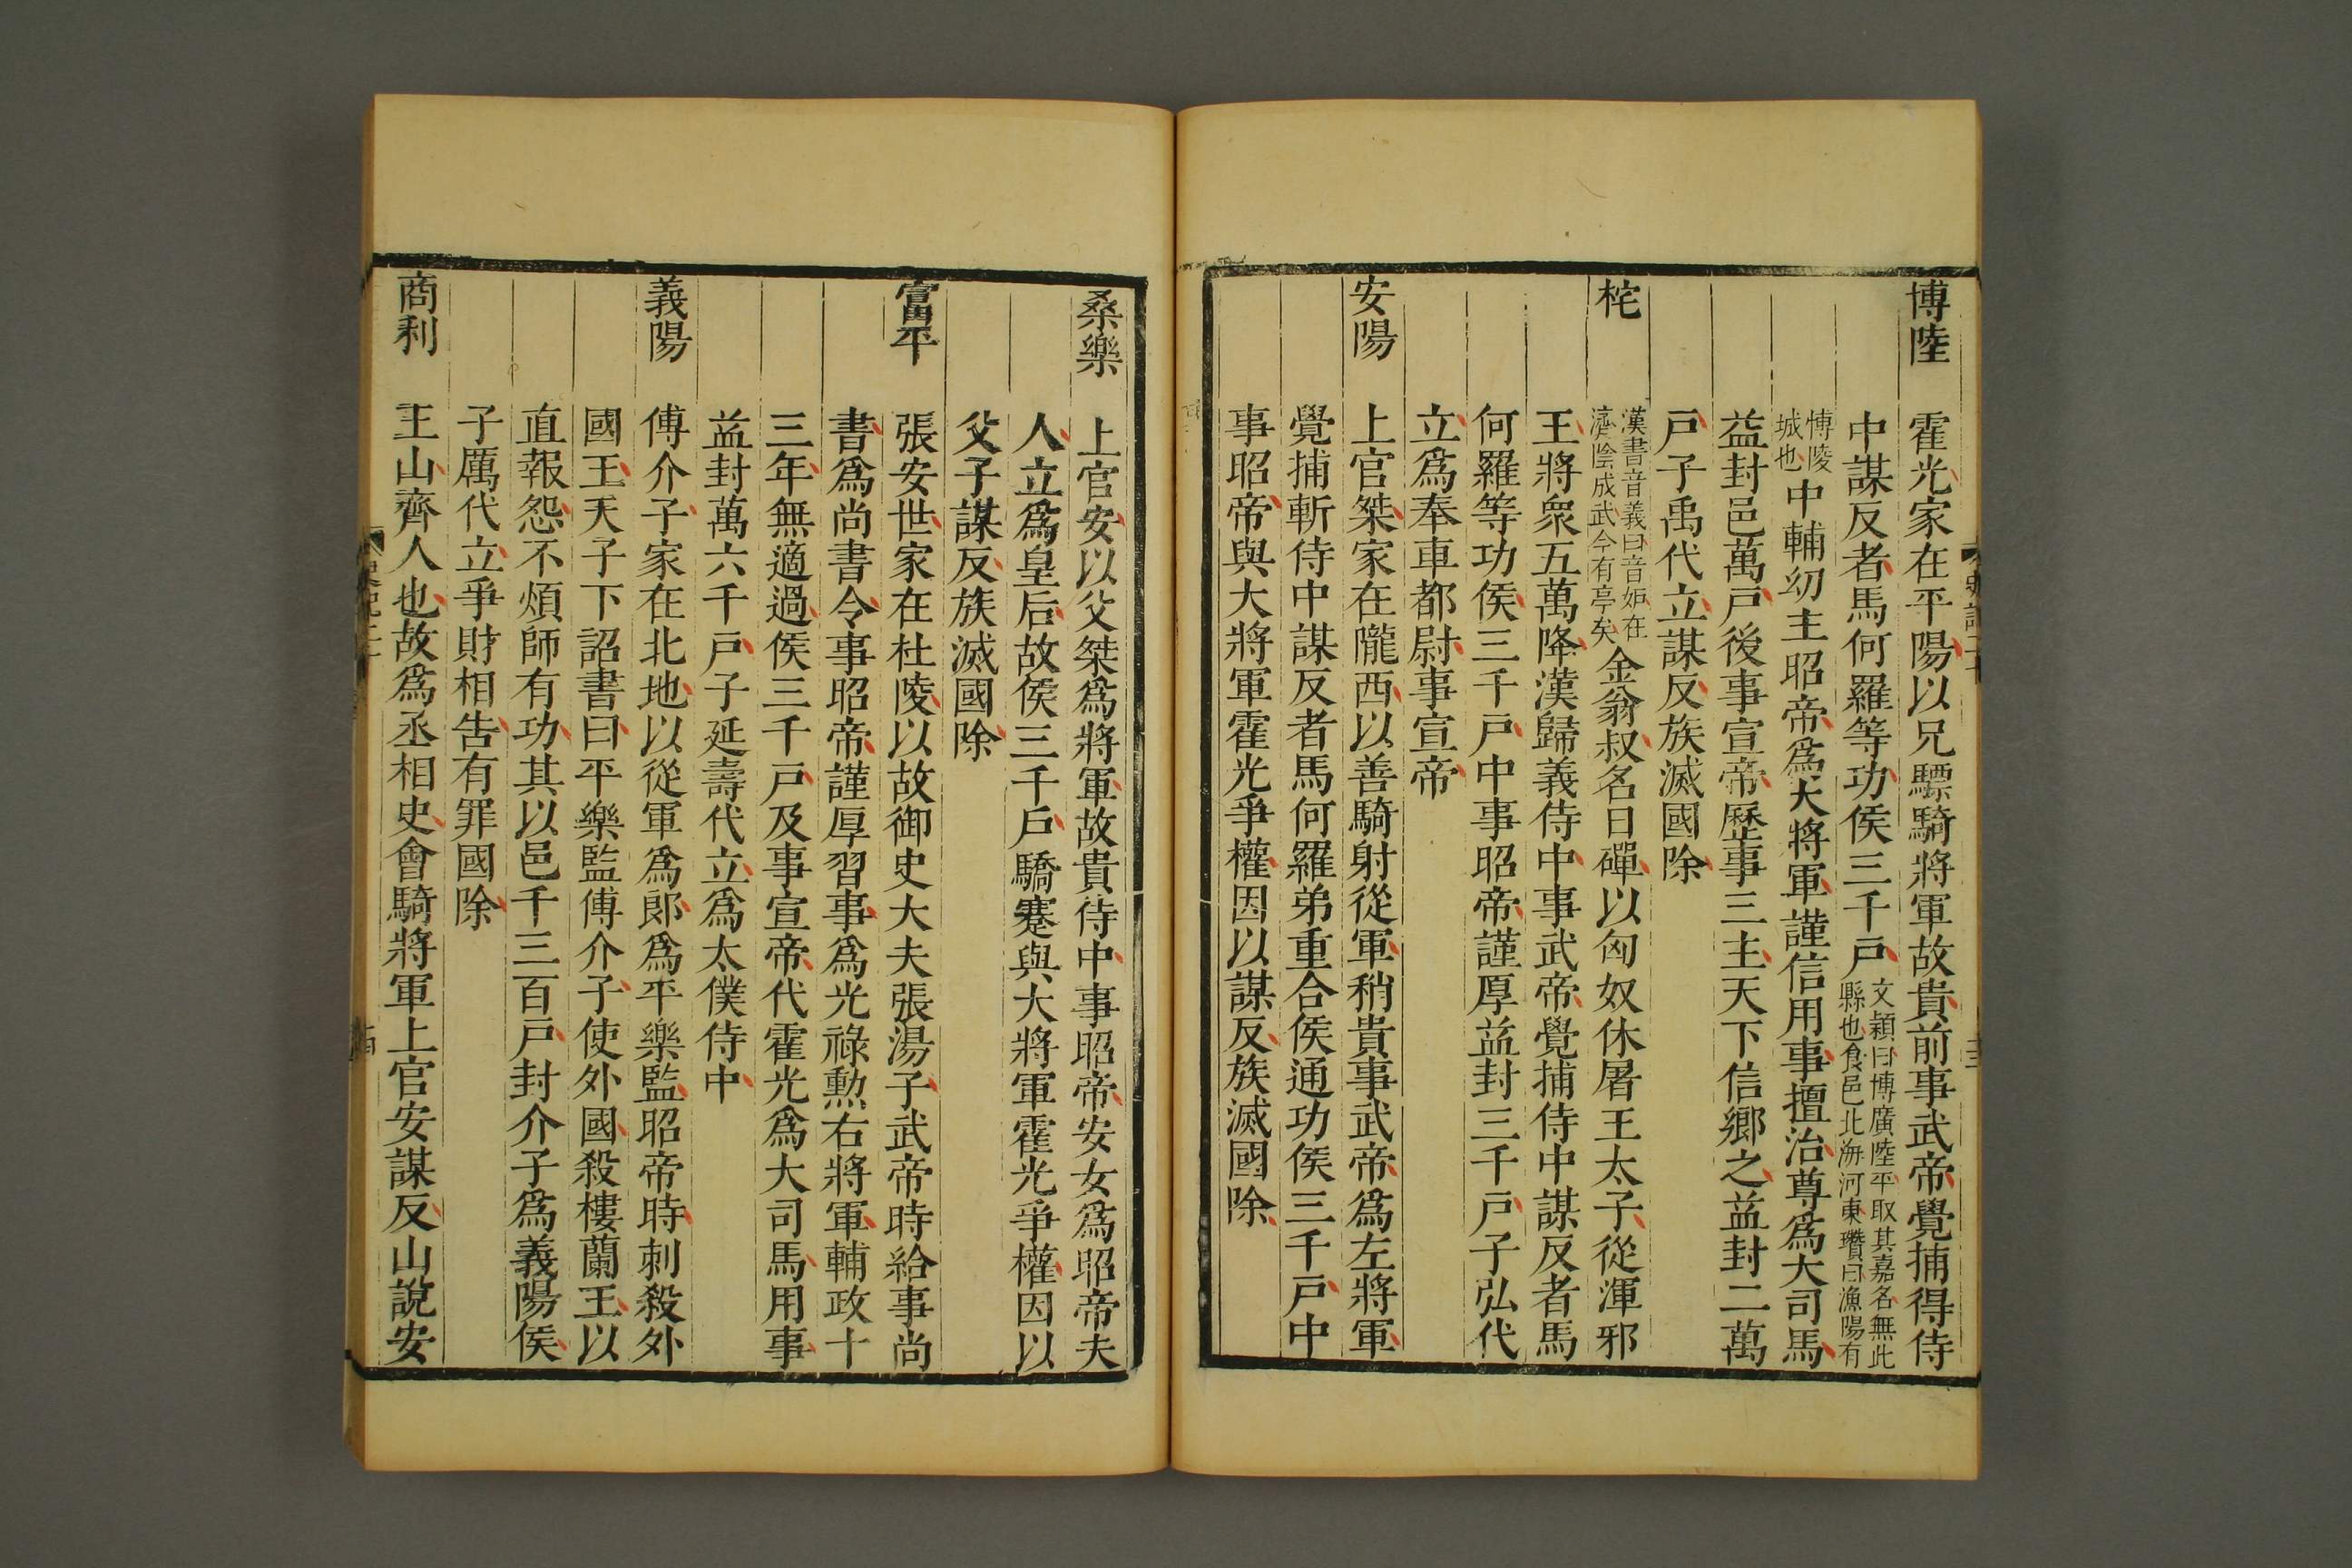 博陸 霍光家在平陽以兄驃騎將軍故貴前事武帝覺捕得侍
中謀反者馬何羅等功侯三千戶文穎曰博廣陸平取其嘉名無此縣也食邑北海河東瓚曰漁陽有
博陵城也中輔幼主昭帝爲大將軍謹信用事擅治尊爲大司馬
益封邑萬戶後事宣帝歷事三主天下信鄉之益封二萬
戶子禹代立謀反族滅國除
秺 漢書音義曰音妬在濟陰成武今有亭矣金翁叔名日磾以匈奴休屠王太子從渾邪
王將衆五萬降漢歸義侍中事武帝覺捕侍中謀反者馬
何羅等功侯三千戶中事昭帝謹厚益封三千戶子弘代
立爲奉車都尉事宣帝
安陽 上官桀家在隴西以善騎射從軍稍貴事武帝爲左將軍
覺捕斬侍中謀反者馬何羅弟重合侯通功侯三千戶中
事昭帝與大將軍霍光爭權因以謀反族滅國除
桑樂 上官安以父桀爲將軍故貴侍中事昭帝安女爲昭帝夫
人立爲皇后故侯三千戶驕蹇與大將軍霍光爭權因以
父子謀反族滅國除
富平 張安世家在杜陵以故御史大夫張湯子武帝時給事尚
書爲尚書令事昭帝謹厚習事爲光祿勳右將軍輔政十
三年無適過侯三千戶及事宣帝代霍光爲大司馬用事
益封萬六千戶子延壽代立爲太僕侍中
義陽 傅介子家在北地以從軍爲郎爲平樂監昭帝時刺殺外
國王天子下詔書曰平樂監傅介子使外國殺樓蘭王以
直報怨不煩師有功其以邑千三百戶封介子爲義陽侯
子厲代立爭財相告有罪國除
商利 王山齊人也故爲丞相史會騎將軍上官安謀反山說安